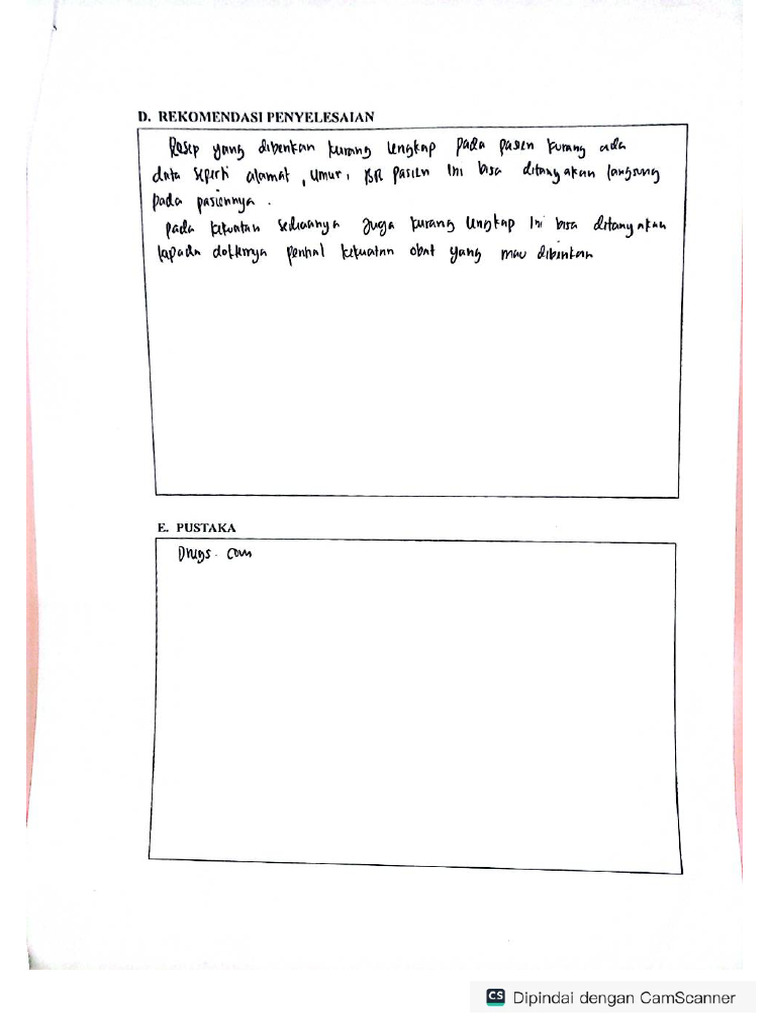 D. REKOMENDASI PENYELESAIAN
Resep yang diberikan kurang lengkap pada pasien kurang ada
data seperti alamat, umur, BB pasien ini bisa ditanyakan langsung
pada pasiennya.
pada kekuatan sediaanya juga kurang lengkap ini bisa ditanyakan
kapada dokternya perihal kekuatan obat yang mau diberikan
E. PUSTAKA
Drugs.com
CS Dipindai dengan CamScanner